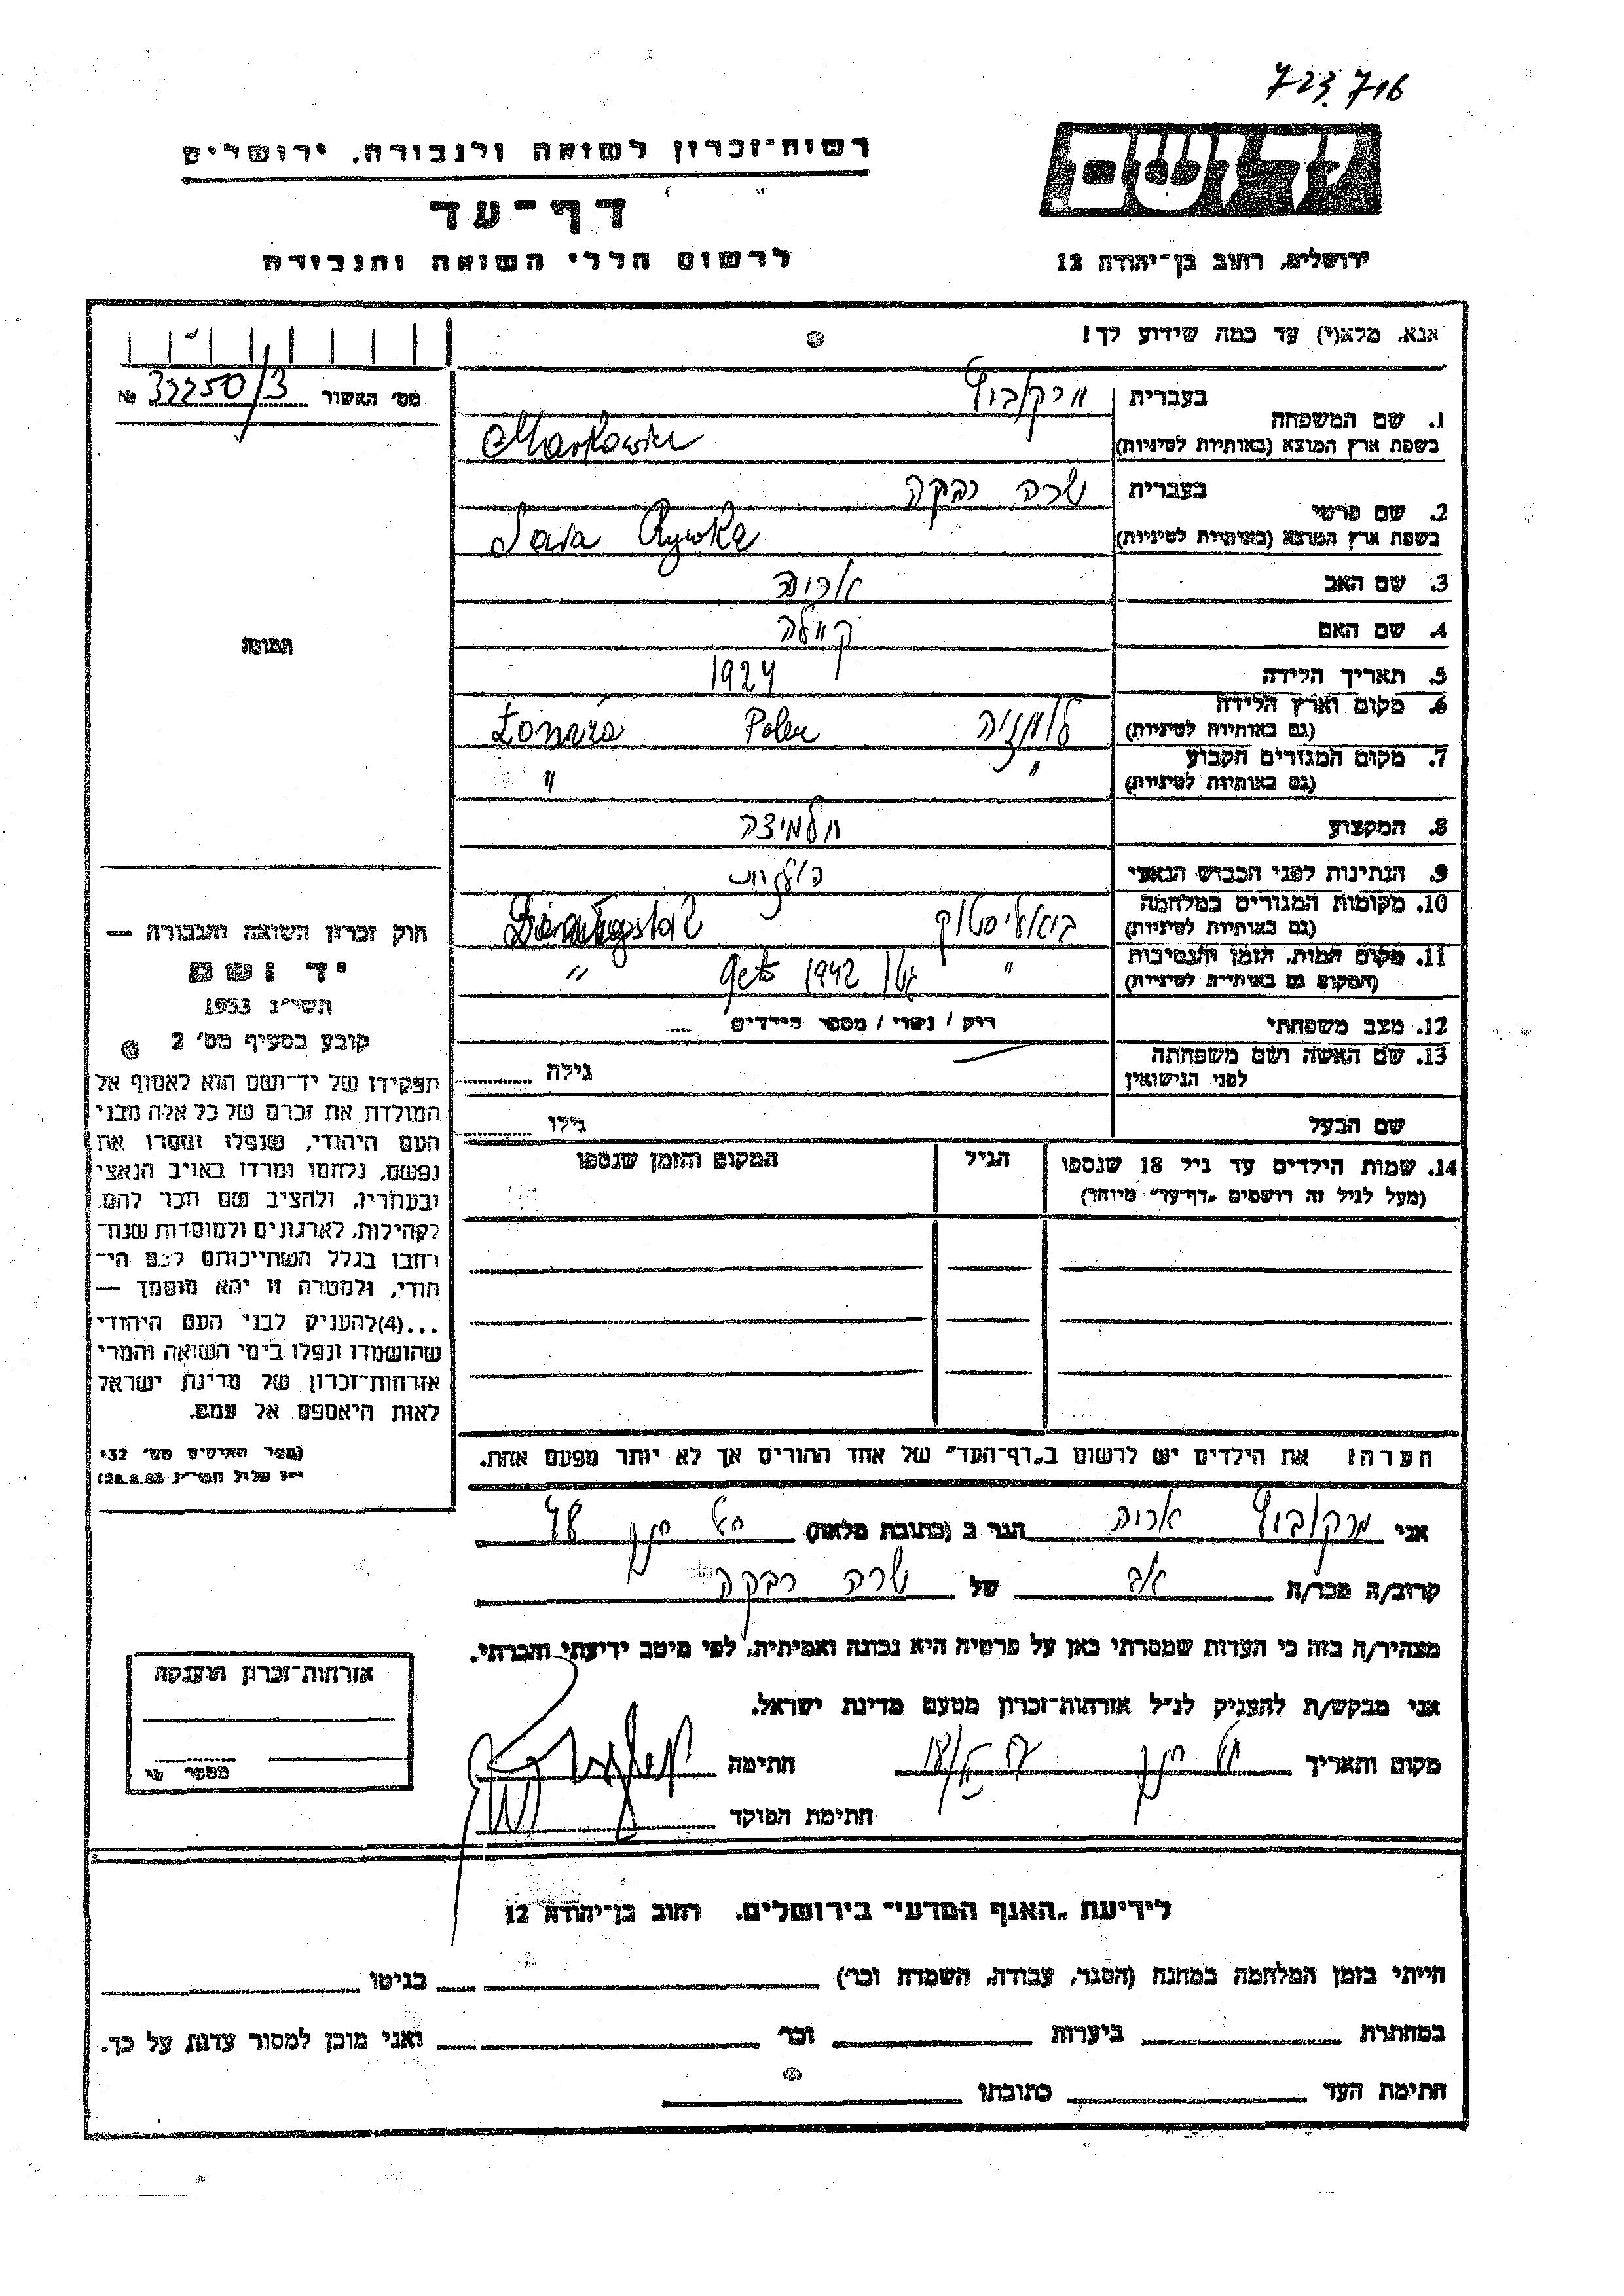 723.716
רשות-זכרון לשואה ולגבורה, ירושלים
יד ושם
דף-עד
לרשום חללי השואה והגבורה
ירושלים, רחוב בן-יהודה 12
אנא, מלא(י) עד כמה שידוע לך!
מס׳ האשור 32250/3 №
1. שם המשפחה
בעברית מרקוביץ
בשפת ארץ המוצא (באותיות לטיניות) Markowicz
2. שם פרטי
בעברית שרה רבקה
בשפת ארץ המוצא (באותיות לטיניות) Sara Rywka
3. שם האב אריה
4. שם האם קיילה
5. תאריך הלידה 1924
6. מקום וארץ הלידה
(גם באותיות לטיניות) Łomża Polen לומזיה
7. מקום המגורים הקבוע
(גם באותיות לטיניות) " "
8. המקצוע תלמידה
9. הנתינות לפני הכבוש הנאצי פולנית
10. מקומות המגורים במלחמה
(גם באותיות לטיניות) ביאליסטוק
11. מקום המות, הזמן והנסיבות
(המקום גם באותיות לטיניות) " גטו 1942 Geto "
12. מצב משפחתי רוק / נשוי / מספר הילדים
13. שם האשה ושם משפחתה
לפני הנישואין
גילה
שם הבעל
גילו
14. שמות הילדים עד גיל 18 שנספו
(מעל לגיל זה רושמים „דף-עד" מיוחד)
הגיל
המקום והזמן שנספו
הערה! את הילדים יש לרשום ב„דף-העד" של אחד ההורים אך לא יותר מפעם אחת.
תמונה
חוק זכרון השואה והגבורה —
יד ושם
תשי״ג 1953
קובע בסעיף מס׳ 2
תפקידו של יד-ושם הוא לאסוף אל
המולדת את זכרם של כל אלה מבני
העם היהודי, שנפלו ומסרו את
נפשם, נלחמו ומרדו באויב הנאצי
ובעוזריו, ולהציב שם וזכר להם,
לקהילות, לארגונים ולמוסדות שנח-
רבו בגלל השתייכותם לעם הי-
הודי, ולמטרה זו יהא מוסמך —
...(4)להעניק לבני העם היהודי
שהושמדו ונפלו בימי השואה והמרי
אזרחות-זכרון של מדינת ישראל
לאות היאספם אל עמם.
(ספר החוקים מס׳ 132,
י״ז אלול תשי״ג 28.8.53)
אני מרקוביץ אריה הגר ב (כתובת מלאה)
קרוב/ה מכר/ה אב של שרה רבקה
מצהיר/ה בזה כי העדות שמסרתי כאן על פרטיה היא נכונה ואמיתית, לפי מיטב ידיעתי והכרתי.
אני מבקש/ת להעניק לנ״ל אזרחות-זכרון מטעם מדינת ישראל.
מקום ותאריך
חתימה
חתימת הפוקד
אזרחות-זכרון הוענקה
מספר
לידיעת „האגף המדעי" בירושלים, רחוב בן-יהודה 12
הייתי בזמן המלחמה במחנה (הסגר, עבודה, השמדה וכו׳) בגיטו
במחתרת ביערות וכו׳ ואני מוכן למסור עדות על כך.
חתימת העד כתובתו